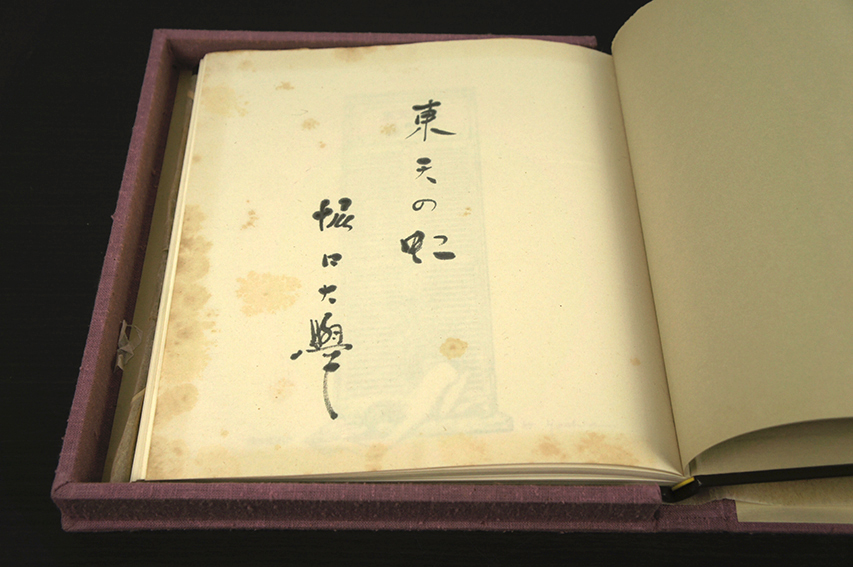 東天の虹
堀口大學